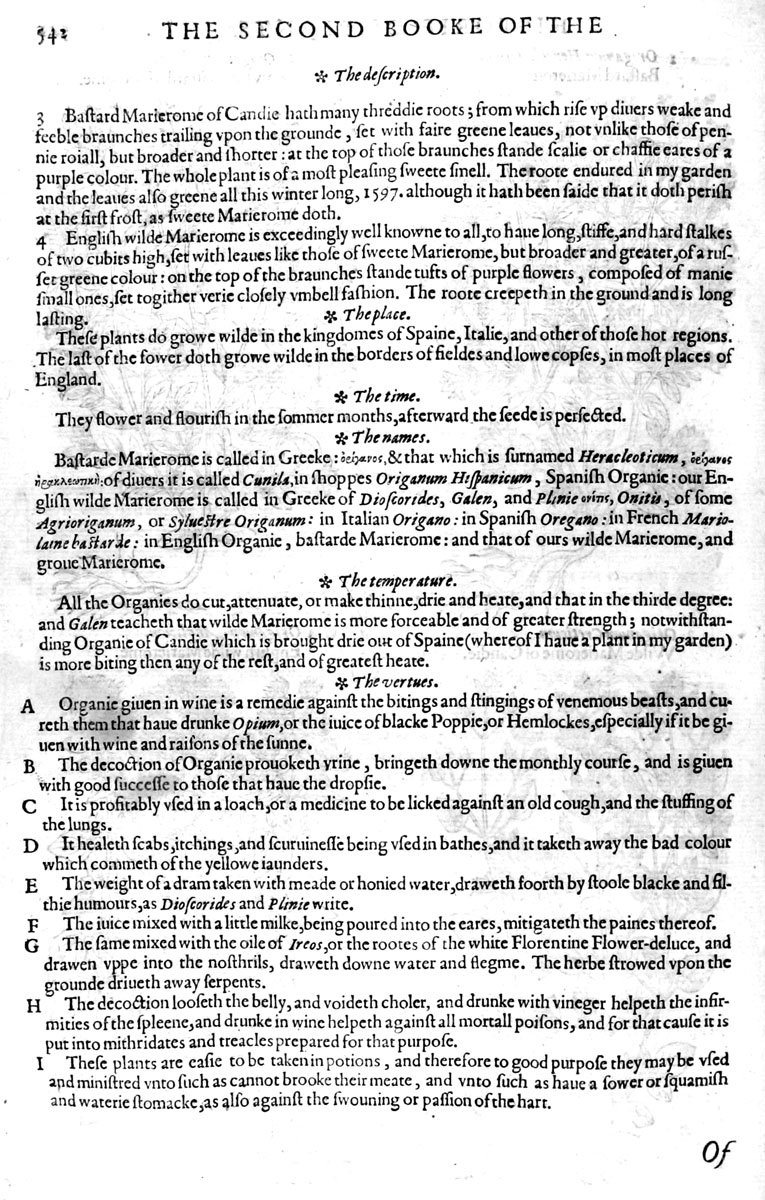 542 THE SECOND BOOKE OF THE
❧ The deſcription.
3 Baſtard Marierome of Candie hath many threddie roots; from which riſe vp diuers weake and
feeble braunches trailing vpon the grounde, ſet with faire greene leaues, not vnlike thoſe of pen-
nie roiall, but broader and ſhorter: at the top of thoſe braunches ſtande ſcalie or chaffie eares of a
purple colour. The whole plant is of a moſt pleaſing ſweete ſmell. The roote endured in my garden
and the leaues alſo greene all this winter long, 1597. although it hath been ſaide that it doth periſh
at the firſt froſt, as ſweete Marierome doth.
4 Engliſh wilde Marierome is exceedingly well knowne to all, to haue long, ſtiffe, and hard ſtalkes
of two cubits high, ſet with leaues like thoſe of ſweete Marierome, but broader and greater, of a ruſ-
ſet greene colour: on the top of the braunches ſtande tufts of purple flowers, compoſed of manie
ſmall ones, ſet togither verie cloſely vmbell faſhion. The roote creepeth in the ground and is long
laſting.
❧ The place.
Theſe plants do growe wilde in the kingdomes of Spaine, Italie, and other of thoſe hot regions.
The laſt of the fower doth growe wilde in the borders of fieldes and lowe copſes, in moſt places of
England.
❧ The time.
They flower and flouriſh in the ſommer months, afterward the ſeede is perfected.
❧ The names.
Baſtarde Marierome is called in Greeke: & that which is ſurnamed Heracleoticum,
of diuers it is called Cunila, in ſhoppes Origanum Hiſpanicum, Spaniſh Organie: our En-
gliſh wilde Marierome is called in Greeke of Dioſcorides, Galen, and Plinie Onitis, of ſome
Agrioriganum, or Sylueſtre Origanum: in Italian Origano: in Spaniſh Oregano: in French Mario-
laine baſtarde: in Engliſh Organie, baſtarde Marierome: and that of ours wilde Marierome, and
groue Marierome.
❧ The temperature.
All the Organies do cut, attenuate, or make thinne, drie and heate, and that in the thirde degree:
and Galen teacheth that wilde Marierome is more forceable and of greater ſtrength; notwithſtan-
ding Organie of Candie which is brought drie out of Spaine (whereof I haue a plant in my garden)
is more biting then any of the reſt, and of greateſt heate.
❧ The vertues.
A Organie giuen in wine is a remedie againſt the bitings and ſtingings of venemous beaſts, and cu-
reth them that haue drunke Opium, or the iuice of blacke Poppie, or Hemlockes, eſpecially if it be gi-
uen with wine and raiſons of the ſunne.
B The decoction of Organie prouoketh vrine, bringeth downe the monthly courſe, and is giuen
with good ſucceſſe to thoſe that haue the dropſie.
C It is profitably vſed in a loach, or a medicine to be licked againſt an old cough, and the ſtuffing of
the lungs.
D It healeth ſcabs, itchings, and ſcuruineſſe being vſed in bathes, and it taketh away the bad colour
which commeth of the yellowe iaunders.
E The weight of a dram taken with meade or honied water, draweth foorth by ſtoole blacke and fil-
thie humours, as Dioſcorides and Plinie write.
F The iuice mixed with a little milke, being poured into the eares, mitigateth the paines thereof.
G The ſame mixed with the oile of Ireos, or the rootes of the white Florentine Flower-deluce, and
drawen vppe into the noſthrils, draweth downe water and flegme. The herbe ſtrowed vpon the
grounde driueth away ſerpents.
H The decoction looſeth the belly, and voideth choler, and drunke with vineger helpeth the infir-
mities of the ſpleene, and drunke in wine helpeth againſt all mortall poiſons, and for that cauſe it is
put into mithridates and treacles prepared for that purpoſe.
I Theſe plants are eaſie to be taken in potions, and therefore to good purpoſe they may be vſed
and miniſtred vnto ſuch as cannot brooke their meate, and vnto ſuch as haue a ſower or ſquamiſh
and waterie ſtomacke, as alſo againſt the ſwouning or paſſion of the hart.
Of